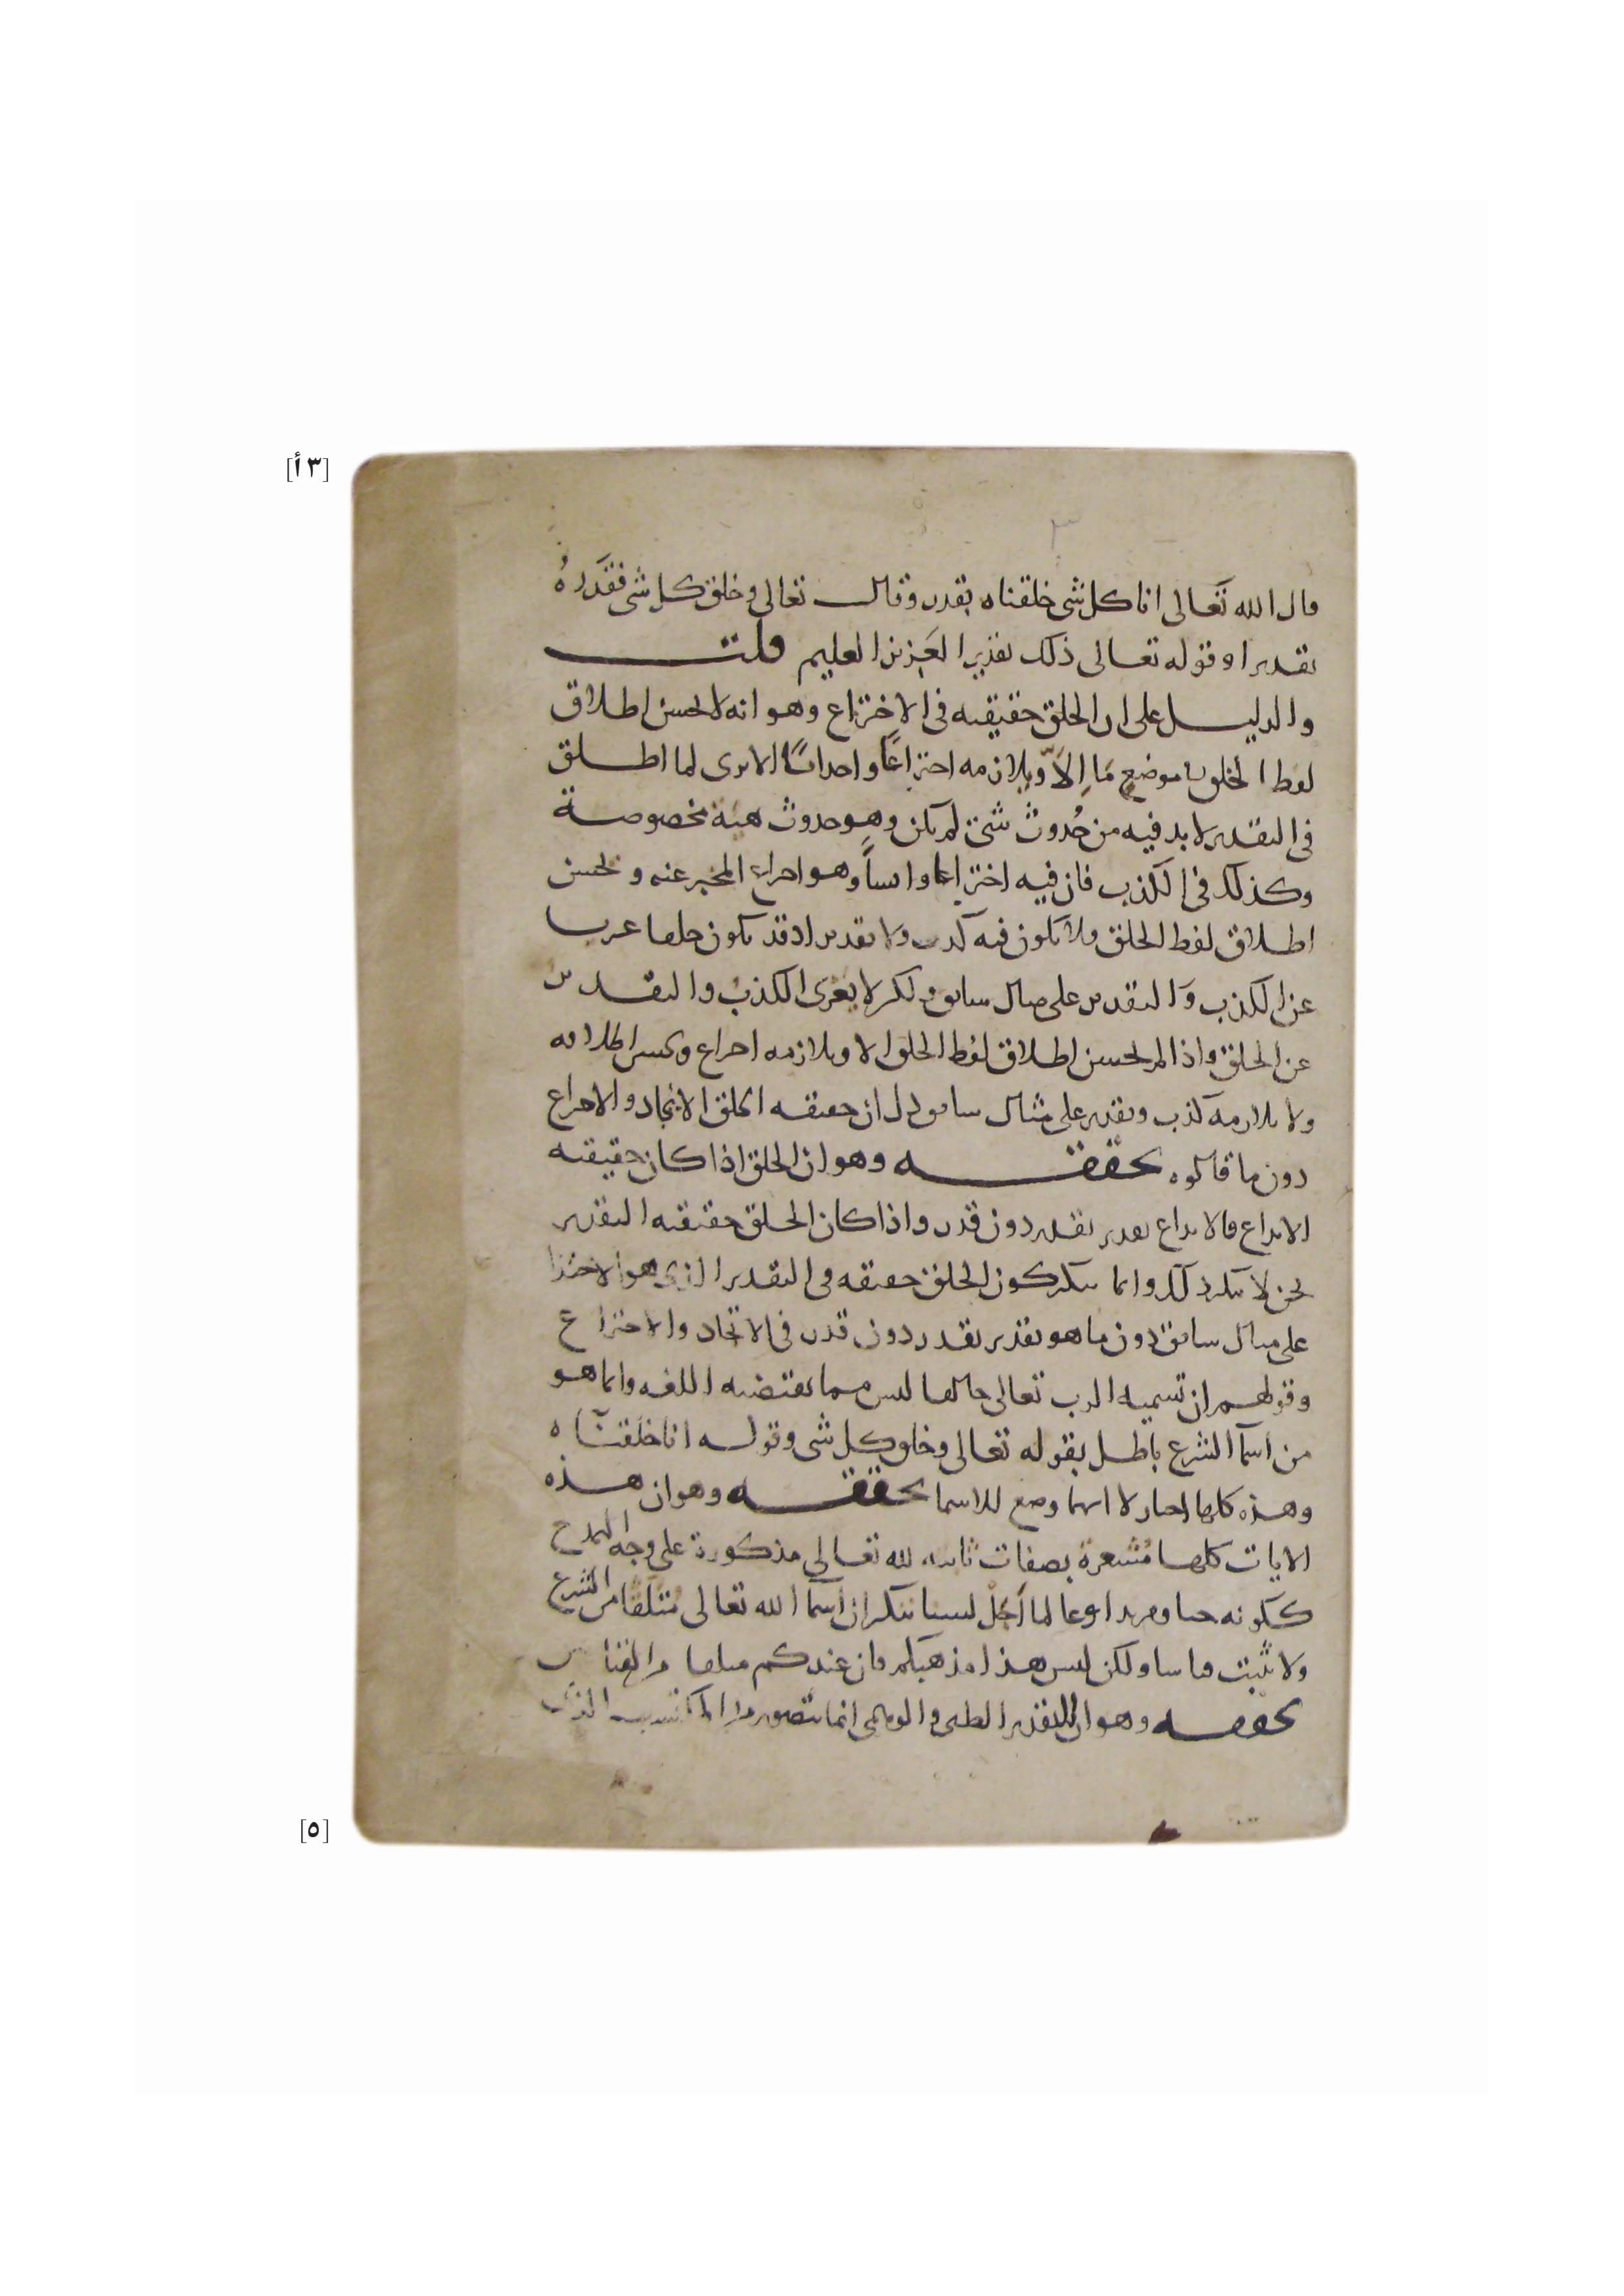 [٣ أ]
قال الله تَعَالى انا كل شى خلقناه بقدر وقال تعالى وخلق كل شى فقَدرهُ
تقديرا وقوله تعالى ذلك تقدير العَزيز العليم قلت
والدليل على ان الخلق حقيقته فى الاختراع وهو انه لا يحسن اطلاق
لفظ الخلق فى موضعٍ مَا اِلاّ ويلازمه اختراعًا واحداثًا الا ترى لما اطلق
فى التقدير لا بد فيه من حُدوث شئ لم يكن وهو حدوث هيئة مخصوصة
وكذلك فى الكذب فان فيه اختراعا وهو اختراع المخبر عنه ويحسن
اطلاق لفظ الخلق ولا يكون فيه كذب ولا تقدير اذ قد يكون خلقا عريا
عن الكذب وَالتقدير على مثال سابق ولكن لا يعرى الكذب والتقدير
عن الخلق واذا لم يحسن اطلاق لفظ الخلق الا ويلازمه اختراع ويحسن اطلاقه
ولا يلازمه كذب وتقدير على مثال سابق دل ان حقيقة الخلق الايجاد والاختراع
دون ما قالوه تحققه وهو ان الخلق اذا كان حقيقته
الابداع فالابداع تقدير بقدر دون قدر واذا كان الخلق حقيقته التقدير
نحن لا ننكر ذلك وانما ننكر كون الخلق حقيقه فى التقدير الذى هو الاختراع
على مثال سابق دون ما هو تقدير بقدر دون قدر فى الاتحاد والاختراع
وقولهم ان تسمية الرب تعالى خالقا ليس مما تقتضيه اللغه وانما هو
من اسمآ الشرع باطل بقوله تعالى وخلق كل شى وقوله انا خلقنَاه
وهذه كلها اخبار لا انها وضع للاسما تحققه وهو ان هذه
الايات كلها مُشعرة بصفات ثابته لله تعالى مذكورة على وجه المدح
ككونه حيا ومريدا وعالما أجل لسنا ننكر ان اسمآ الله تعالى مُتلقا من الشرع
ولا تثبت قياسا ولكن ليس هذا مذهبكم فان عندكم من القياس
تحققه وهو ان التقدير الظنى والوهمى انما يتصور من المكتسب الذى
[٥]